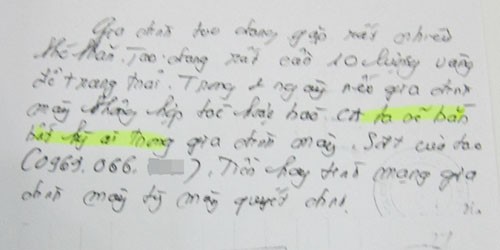 Gia đình tao đang gặp rất nhiều
khó khăn. Tao đang rất cần 10 lượng vàng
để trang trải. Trong 2 ngày nếu gia đình
mày không hợp tác hoặc báo CA ta sẽ bắn
bất kỳ ai trong gia đình mày. Sđt của tao
(0969.066. ). Tiền hay tính mạng gia
đình mày tùy mày quyết định.